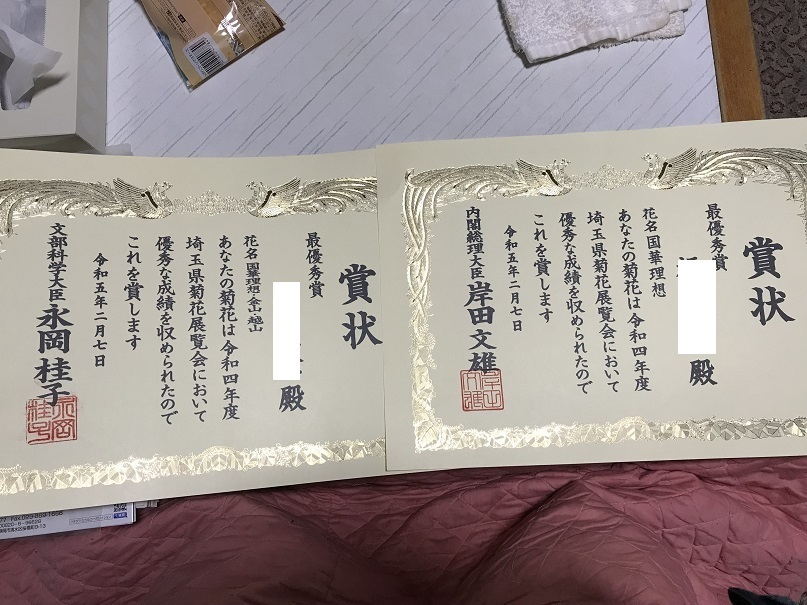 賞状
最優秀賞
殿
花名 国華理想
あなたの菊花は令和四年度
埼玉県菊花展覧会において
優秀な成績を収められたので
これを賞します
令和五年二月七日
内閣総理大臣 岸田文雄
賞状
最優秀賞
殿
花名 国華理想・金山・越山
あなたの菊花は令和四年度
埼玉県菊花展覧会において
優秀な成績を収められたので
これを賞します
令和五年二月七日
文部科学大臣 永岡桂子